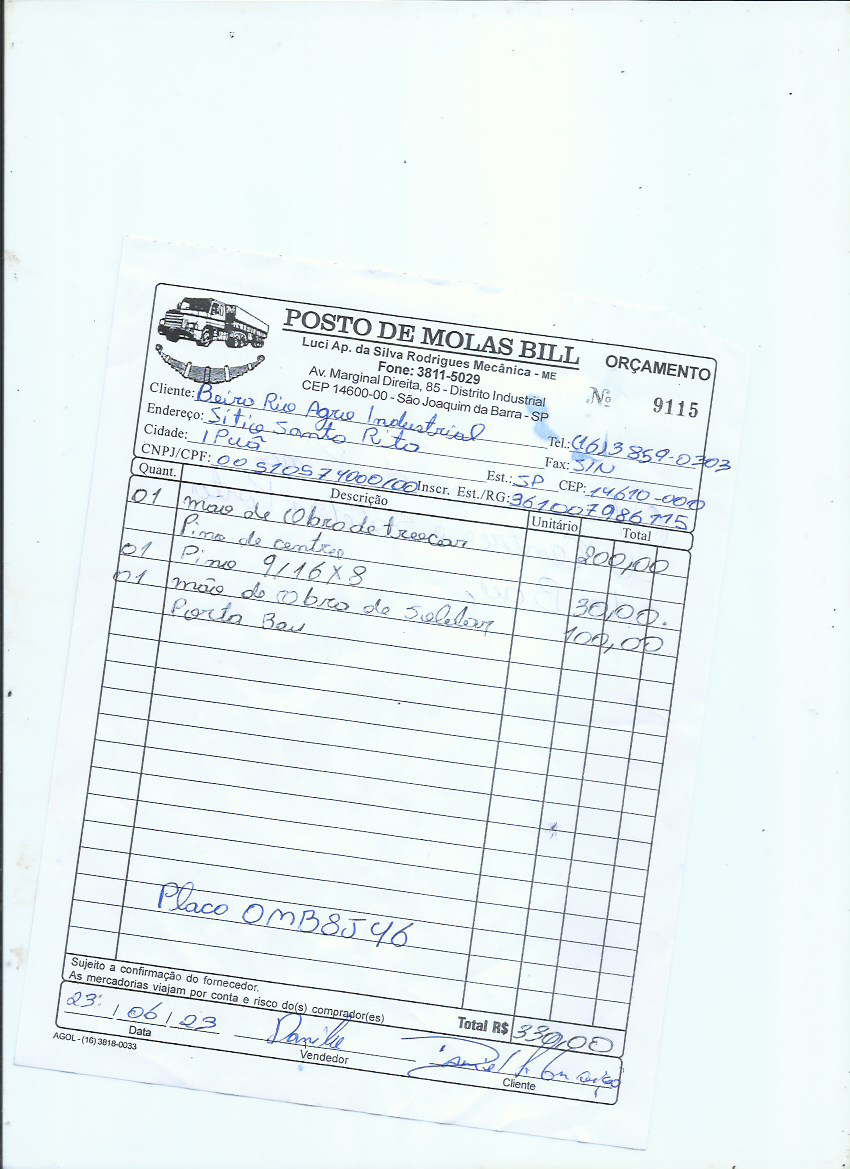 POSTO DE MOLAS BILL
ORÇAMENTO
Luci Ap. da Silva Rodrigues Mecânica - ME
Fone: 3811-5029
Av. Marginal Direita, 85 - Distrito Industrial
CEP 14600-00 - São Joaquim da Barra - SP
Nº 9115
Cliente: Beiro Rio Agro Industrial Tel.: (16) 3859-0303
Endereço: Sítio Santo Rito Fax: S/N
Cidade: IPuã Est.: SP CEP: 14610-000
CNPJ/CPF: 00510574000100 Inscr. Est./RG: 361007986115
Quant. Descrição Unitário Total
01 mão de Obro de treocar 200,00
Pino de centro
01 Pino 9/16X8 30,00.
01 mão de Obro de Soldar 100,00
Porta Bau
Placo OMB8J46
Sujeito a confirmação do fornecedor.
As mercadorias viajam por conta e risco do(s) comprador(es)
Total R$ 330,00
23 / 06 / 23
Data
Vendedor
Cliente
AGOL - (16) 3818-0033